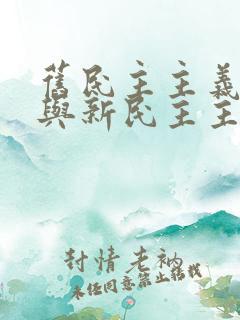 舊民主主義
與新民主主
封情老衲
未经同意禁止转载